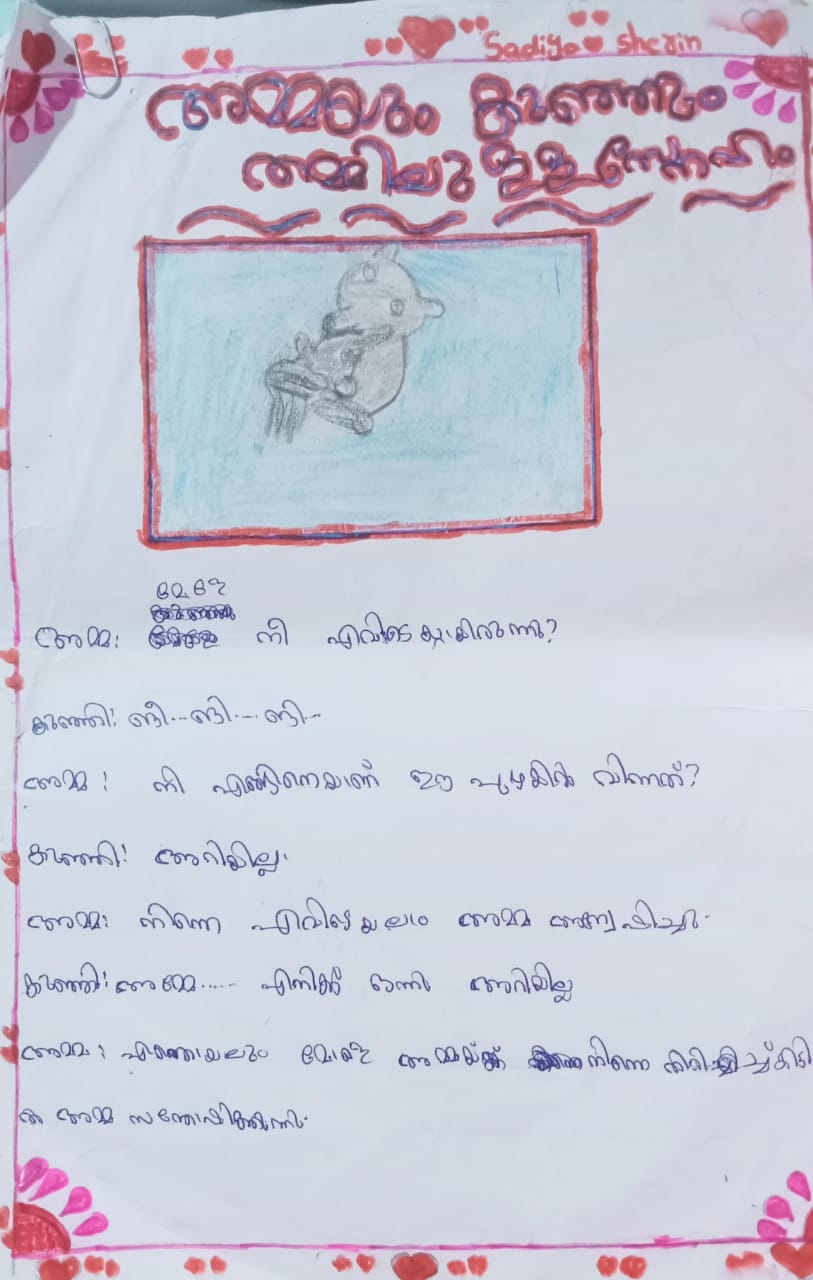 Sadiya sherin
അമ്മയും കുഞ്ഞും
തമ്മിലു ള്ള സ്നേഹം
മോളേ
അമ്മ: നീ എവിടെ യായിരുന്നു?
കുഞ്ഞി: ങീ... ങി.... ങി...
അമ്മ: നീ എങ്ങിനെയാണ് ഈ പുഴയിൽ വീണത്?
കുഞ്ഞി: അറിയില്ല.
അമ്മ: നിന്നെ എവിടെ യലാം അമ്മ അന്വേഷിച്ചു.
കുഞ്ഞി: അമ്മേ...... എനിക്ക് ഒന്നും അറിയില്ല
അമ്മ: എന്തായലും മോളേ അമ്മയ്ക്ക് നിന്നെ തിരിച്ച്കിട്ടി
അമ്മ സന്തോഷിക്കുന്നു.